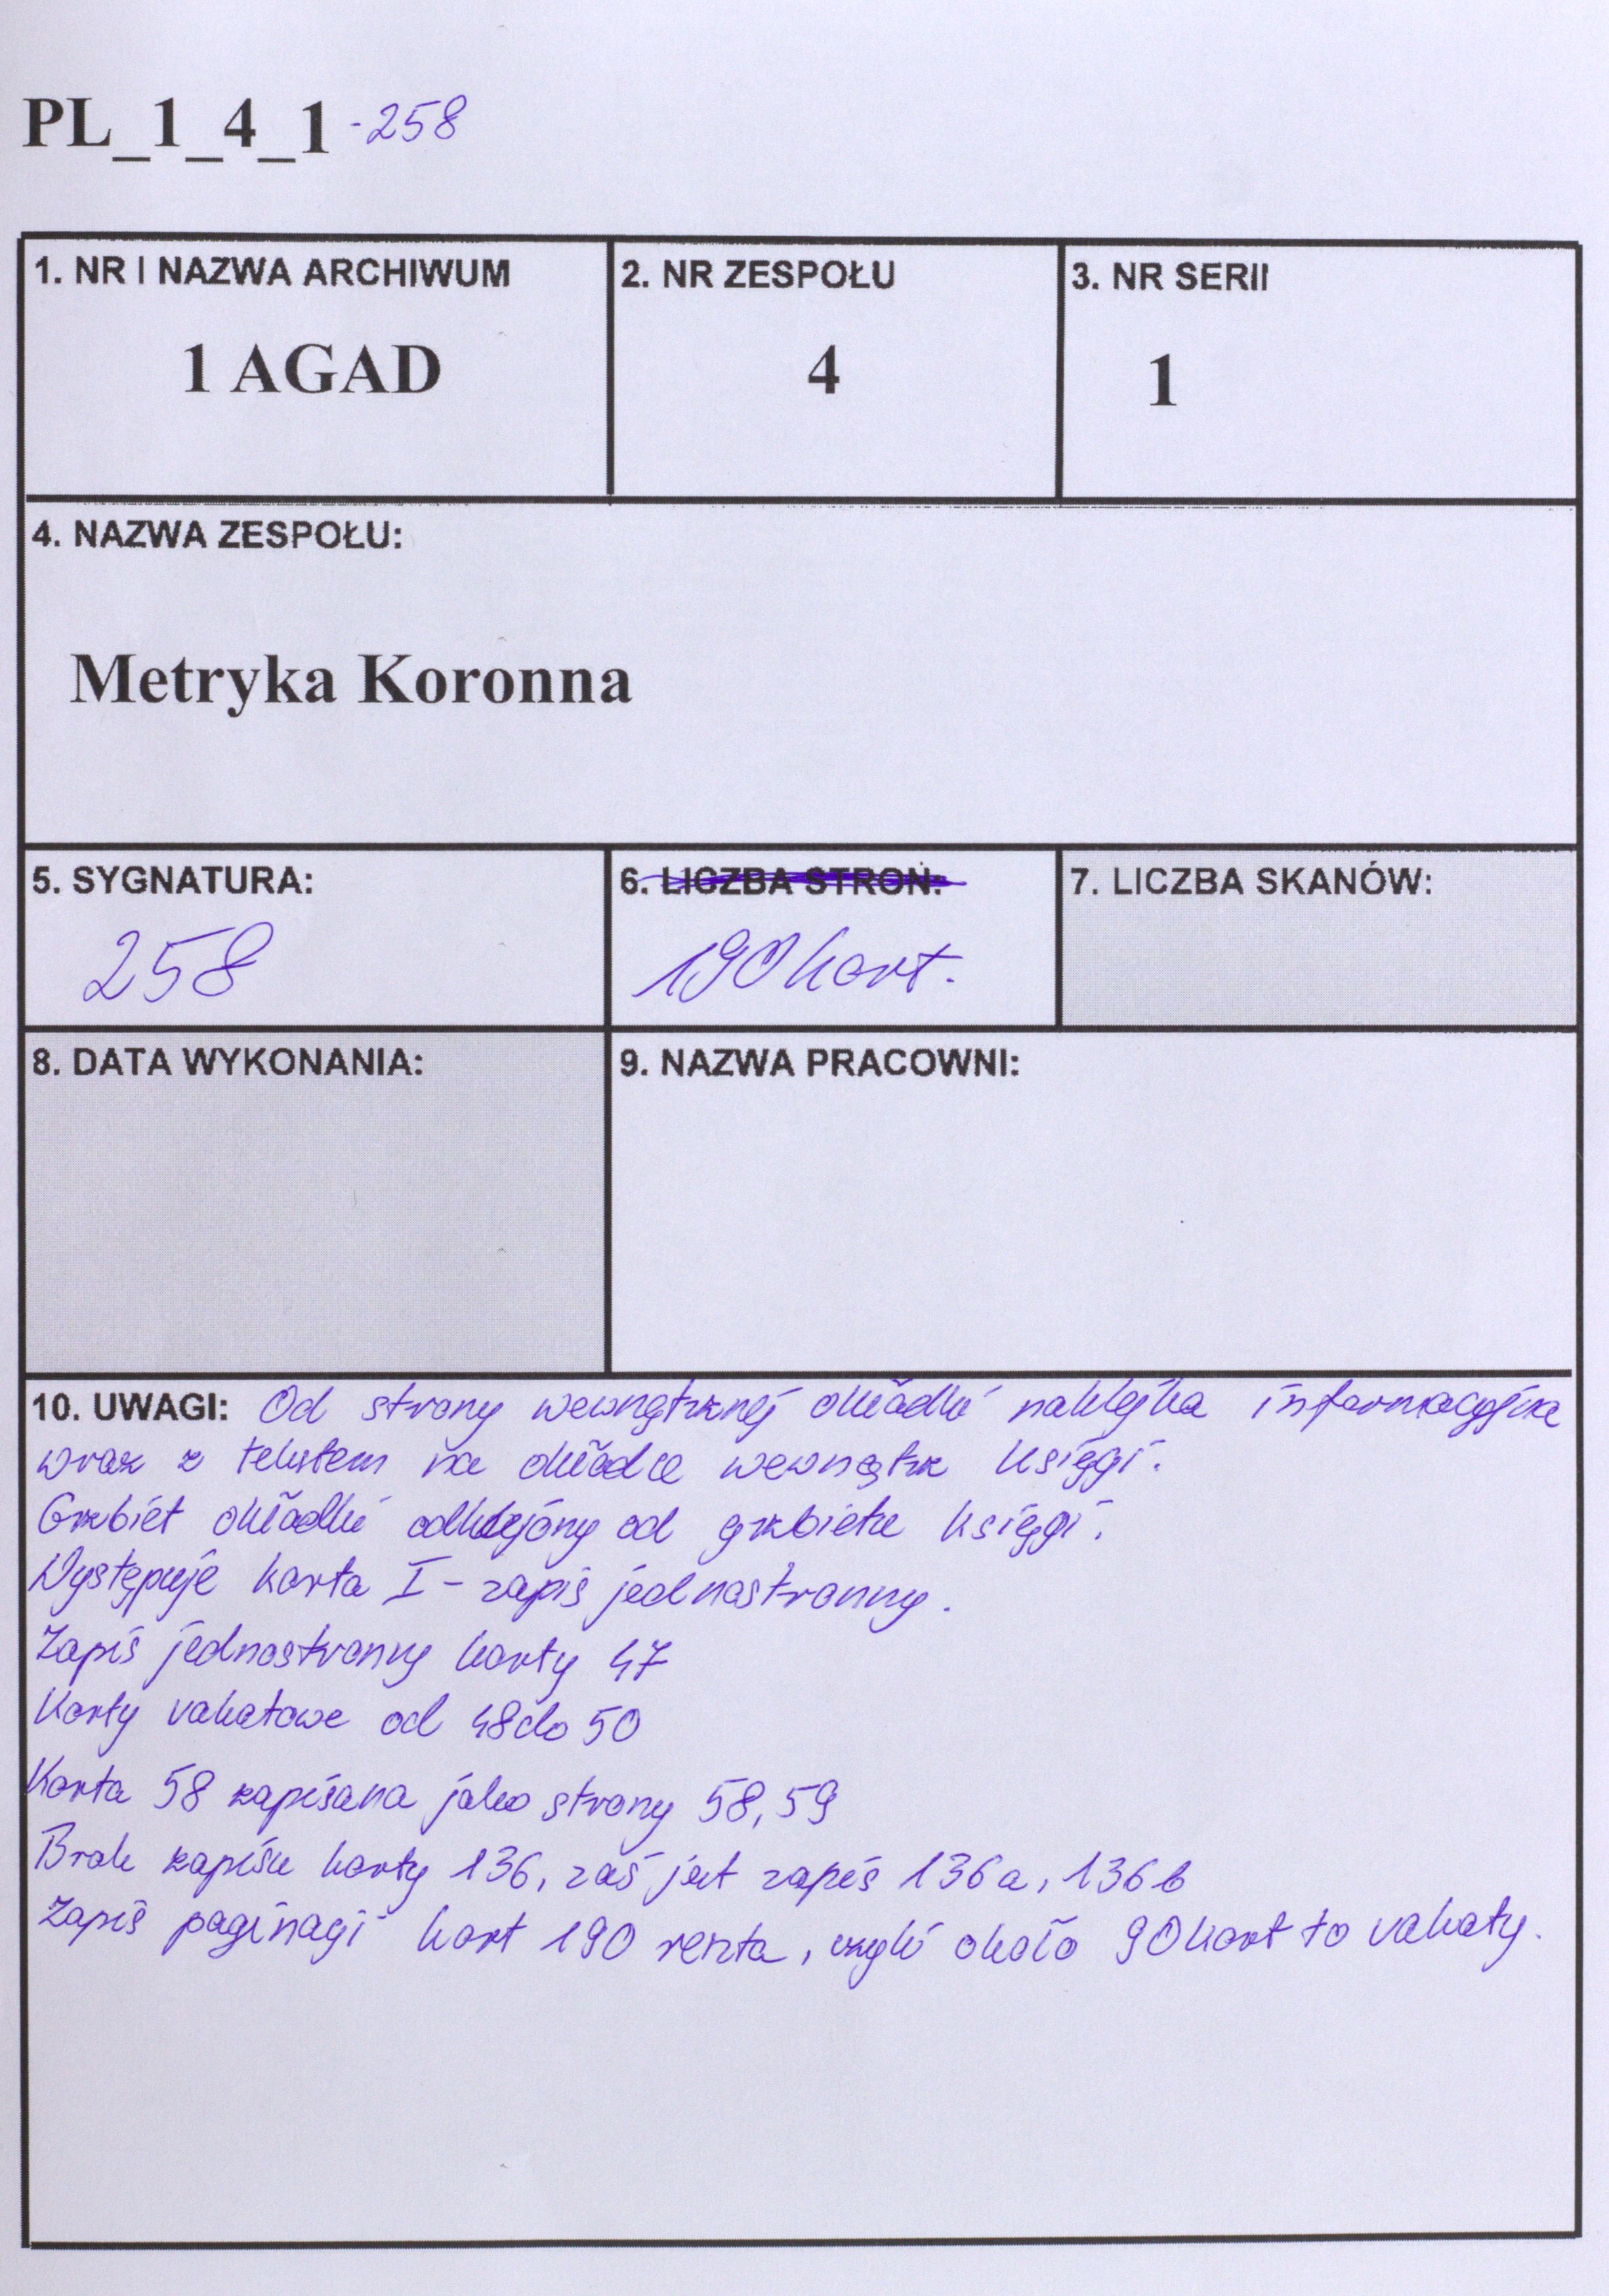 PL_1_4_1 -258
1. NR I NAZWA ARCHIWUM
1 AGAD
2. NR ZESPOŁU
4
3. NR SERII
1
4. NAZWA ZESPOŁU:
Metryka Koronna
5. SYGNATURA:
258
6. LICZBA STRON:
190 kart.
7. LICZBA SKANÓW:
8. DATA WYKONANIA:
9. NAZWA PRACOWNI:
10. UWAGI: Od strony wewnętrznej okładki naklejka informacyjna
wraz z tekstem na okładce wewnątrz księgi.
Grzbiet okładki odklejony od grzbietu księgi.
Występuje karta I - zapis jednostronny.
Zapis jednostronny karty 47
Karty vakatowe od 48 do 50
Karta 58 zapisana jako strony 58, 59
Brak zapisu karty 136, zaś jest zapis 136a, 136b
Zapis paginagi kart 190 reszta, czyli około 90 kart to vakaty.